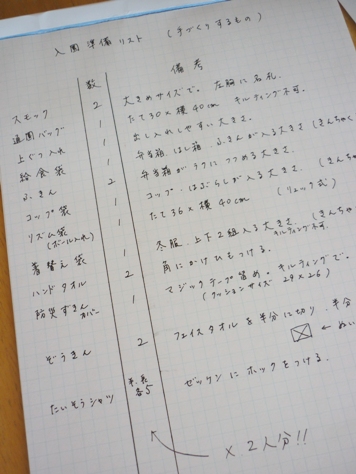 入園準備リスト (手づくりするもの)
数 備考
スモック 2 大きめサイズで。左胸に名札。
通園バッグ 1 たて30×横40cm キルティング不可。
上ぐつ入れ 1 出し入れしやすい大きさ。
給食袋 1 弁当箱、はし箱、ふきんが入る大きさ(きんちゃく
ふきん 2 弁当箱がラクにつつめる大きさ。
コップ袋 1 コップ・はぶらしが入る大きさ。(きん
リズム袋 1 たて36×横40cm (リュック式)
(ボール入れ)
着替え袋 1 冬服、上下2組入る大きさ。(きんちゃ
キルティング不可.
ハンドタオル 2 角にかけひもつける。
防災ずきん 1 マジックテープ留め。キルティングで。
カバー (クッションサイズ 29×26)
ぞうきん 2 フェイスタオルを半分に切り、半分
← ぬい
たいそうシャツ 半・長 各5 ゼッケンにホックをつける。
× 2人分!!